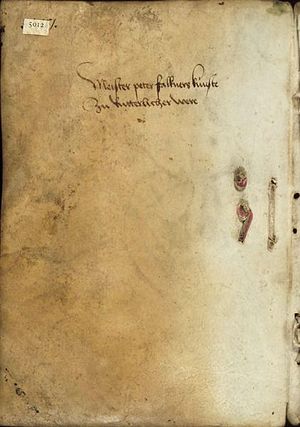 5012
Meister peter falkners künste
Zu Ritterlicher were